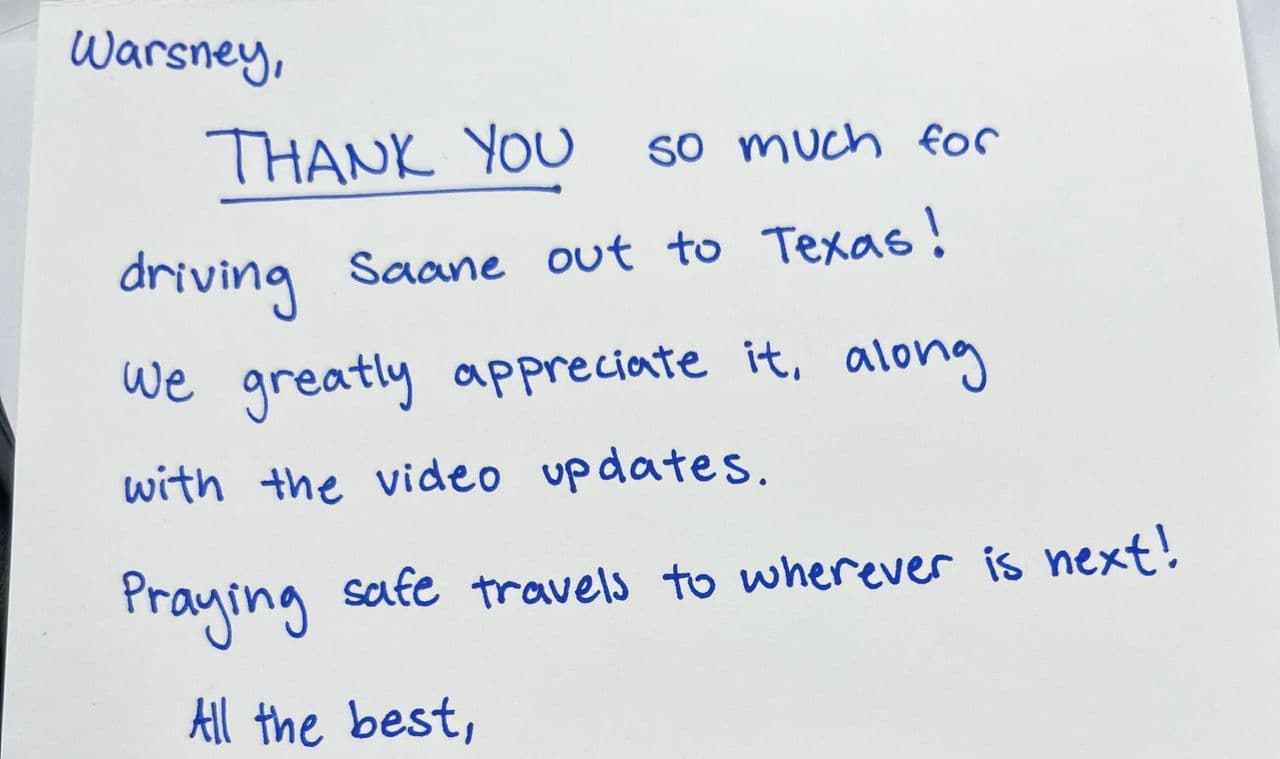 Warsney,
THANK YOU so much for
driving Saane out to Texas!
We greatly appreciate it, along
with the video updates.
Praying safe travels to wherever is next!
All the best,